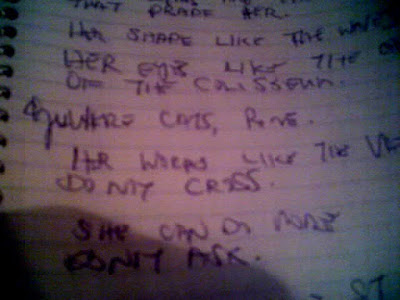 THAT DRAPE HER.
HER SHAPE LIKE THE WAVES
HER EYES LIKE THE
OF THE COLISSEUM.
WHERE CATS, ROME.
HER WORDS LIKE THE
DO NOT CROSS.
SHE CAN DO MORE
DON'T ASK.
ST